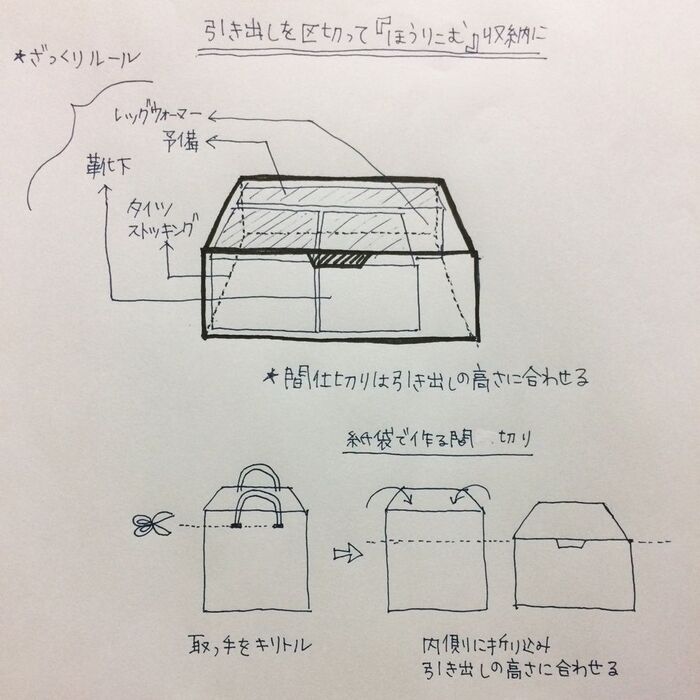 引き出しを区切って『ほうりこむ』収納に
*ざっくりルール
レッグウォーマー
予備
靴下
タイツ
ストッキング
*間仕切りは引き出しの高さに合わせる
紙袋で作る間 切り
取っ手をキリトル
内側に折り込み
引き出しの高さに合わせる